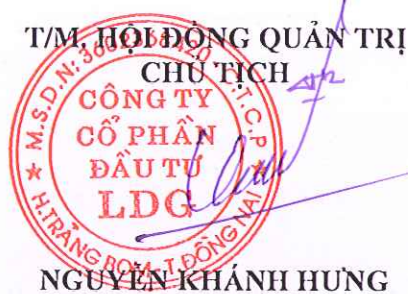 T/M. HỘI ĐỒNG QUẢN TRỊ
CHỦ TỊCH
CÔNG TY
CỔ PHẦN
ĐẦU TƯ
LDG
H.TRẢNG BOM - T.ĐỒNG NAI
NGUYỄN KHÁNH HƯNG